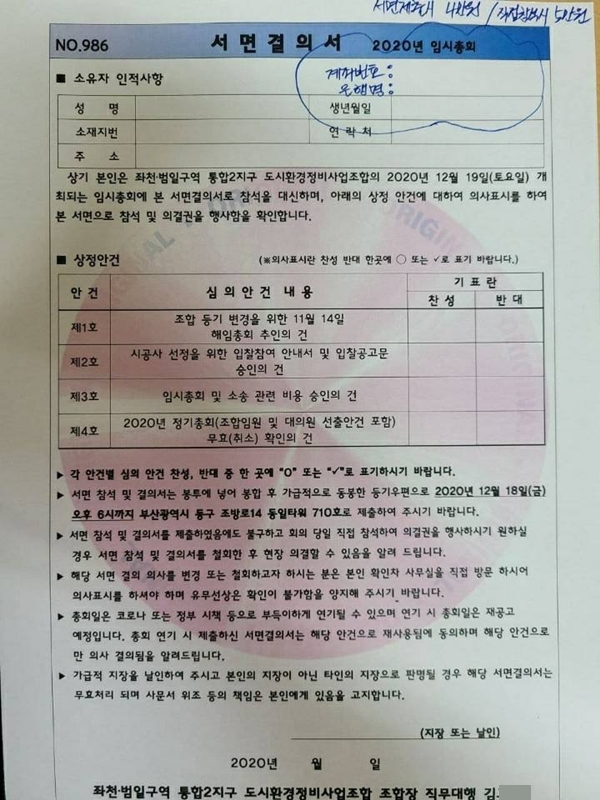 서면제출자 4만원 / 직접참석시 5만원
NO.986 서면결의서 2020년 임시총회
계좌번호:
은행명:
■ 소유자 인적사항
성 명 생년월일
소재지번 연 락 처
주 소
상기 본인은 좌천·범일구역 통합2지구 도시환경정비사업조합의 2020년 12월 19일(토요일) 개
최되는 임시총회에 본 서면결의서로 참석을 대신하며, 아래의 상정 안건에 대하여 의사표시를 하여
본 서면으로 참석 및 의결권을 행사함을 확인합니다.
■ 상정안건 (※의사표시란 찬성 반대 한곳에 ○ 또는 ✓로 표기 바랍니다.)
안 건 심 의 안 건 내 용 기 표 란
찬 성 반 대
제1호 조합 등기 변경을 위한 11월 14일
해임총회 추인의 건
제2호 시공사 선정을 위한 입찰참여 안내서 및 입찰공고문
승인의 건
제3호 임시총회 및 소송 관련 비용 승인의 건
제4호 2020년 정기총회(조합임원 및 대의원 선출안건 포함)
무효(취소) 확인의 건
▶ 각 안건별 심의 안건 찬성, 반대 중 한 곳에 "O" 또는 "✓"로 표기하시기 바랍니다.
▶ 서면 참석 및 결의서는 봉투에 넣어 봉합 후 가급적으로 동봉한 등기우편으로 2020년 12월 18일(금)
오후 6시까지 부산광역시 동구 조방로14 동일타워 710호로 제출하여 주시기 바랍니다.
▶ 서면 참석 및 결의서를 제출하였음에도 불구하고 회의 당일 직접 참석하여 의결권을 행사하시기 원하실
경우 서면 참석 및 결의서를 철회한 후 현장 의결할 수 있음을 알려 드립니다.
▶ 해당 서면 결의 의사를 변경 또는 철회하고자 하시는 분은 본인 확인차 사무실을 직접 방문 하시어
의사표시를 하셔야 하며 유무선상은 확인이 불가함을 양지해 주시기 바랍니다.
▶ 총회일은 코로나 또는 정부 시책 등으로 부득이하게 연기될 수 있으며 연기 시 총회일은 재공고
예정입니다. 총회 연기 시 제출하신 서면결의서는 해당 안건으로 재사용됨에 동의하며 해당 안건으로
만 의사 결의됨을 알려드립니다.
▶ 가급적 지장을 날인하여 주시고 본인의 지장이 아닌 타인의 지장으로 판명될 경우 해당 서면결의서는
무효처리 되며 사문서 위조 등의 책임은 본인에게 있음을 고지합니다.
(지장 또는 날인)
2020년 월 일
좌천·범일구역 통합2지구 도시환경정비사업조합 조합장 직무대행 김